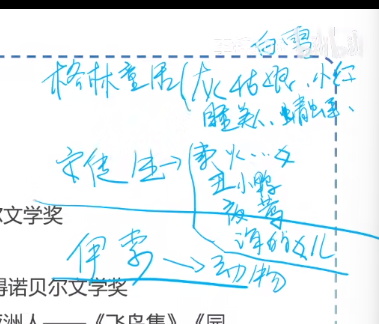 白雪
格林童话(灰姑娘、小红
睡美人、蜻蛙、
安徒生→卖火…女
丑小鸭
夜莺
海的女儿
尔文学奖
伊索→动物
得诺贝尔文学奖
《飞鸟集》《园